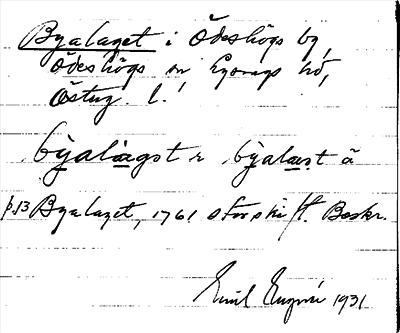 Byalaget i Ödeshögs by,
Ödeshögs sn Lysings hd,
Östug. l.
býalàgst r býalast ä
p.13 Byalaget, 1761 storskift. Beskr.
Emil 1931